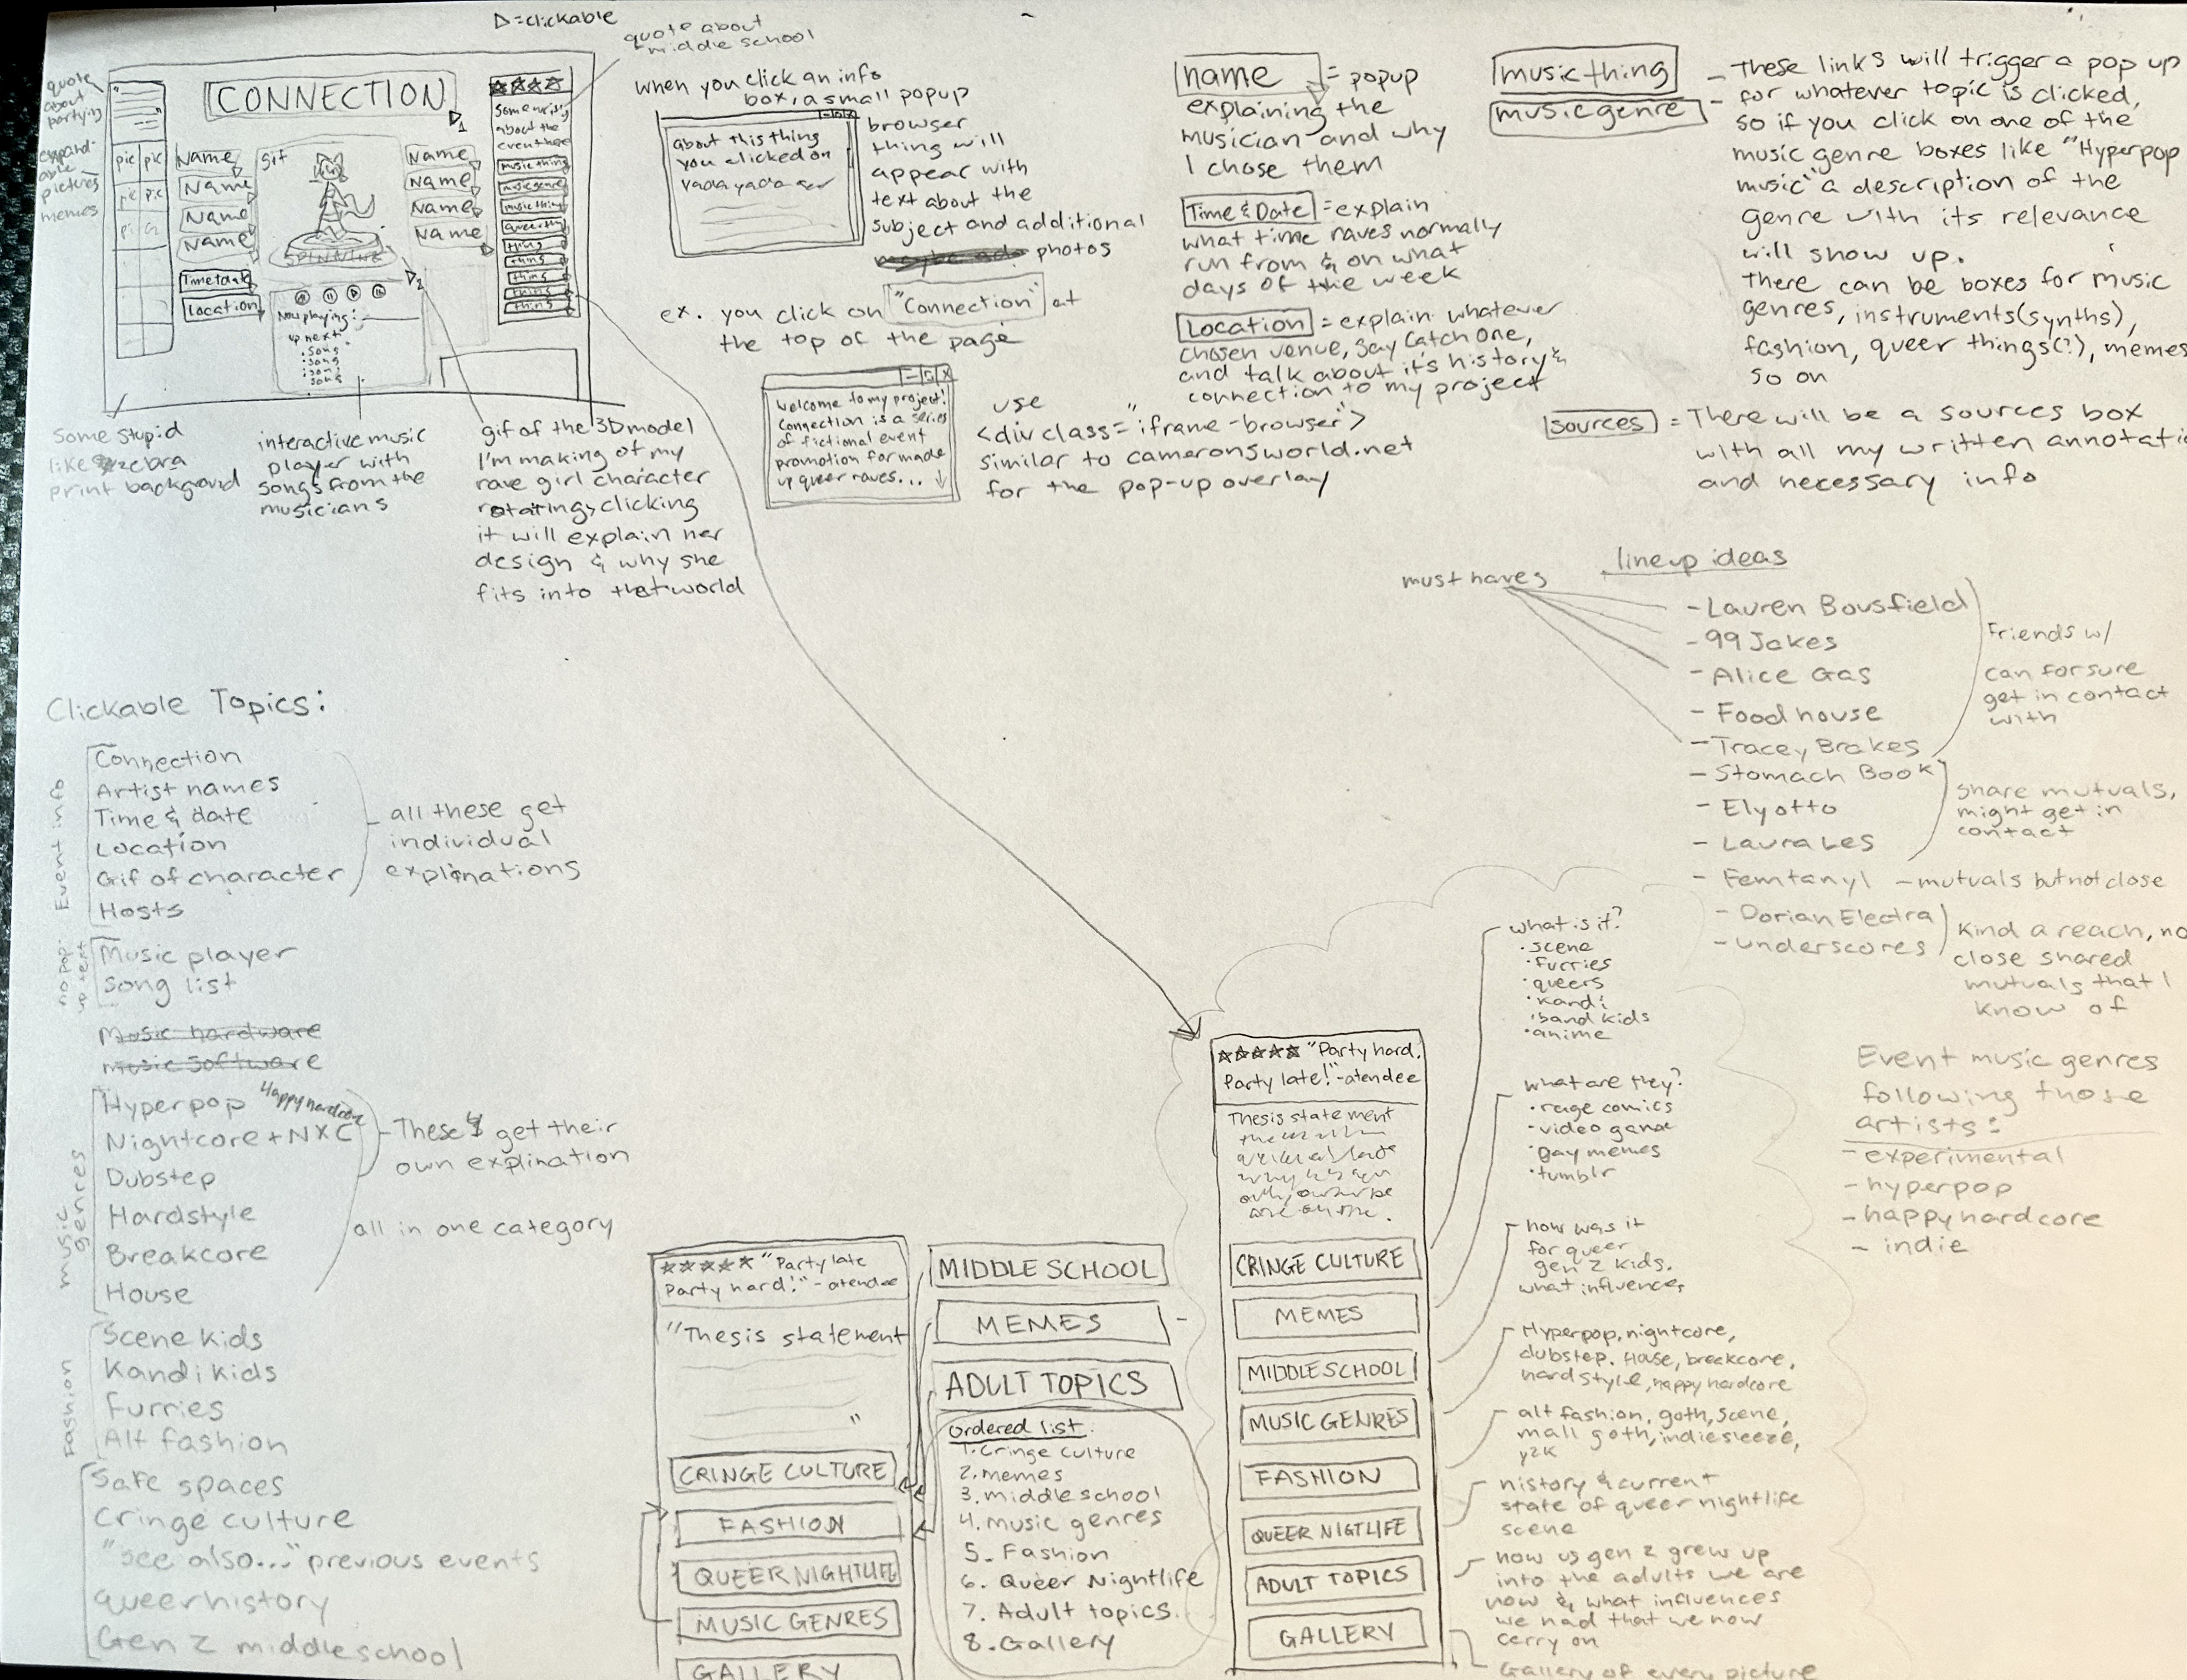 ▷=clickable
quote about
middle school
quote
about
partying
expand-
able
pictures
memes
CONNECTION
1
☆☆☆☆
some writing
about the
event here
music thing
music genre
music thing
queer thing
thing
thing
thing
thing
thing
pic pic
pic pic
pic
Name
Name
Name
Name
Time&date
Location
gif
SPINNING
Name
Name
Name
Name
2
Now playing:
up next
·song
·song
·song
song
some stupid
like zebra
print background
interactive music
player with
songs from the
musicians
gif of the 3D model
I'm making of my
rave girl character
rotating, clicking
it will explain her
design & why she
fits into that world
when you click an info
box, a small popup
browser
thing will
appear with
text about the
subject and additional
maybe add photos
about this thing
you clicked on
yada yada
ex. you click on "Connection" at
the top of the page
Welcome to my project!
Connection is a series
of fictional event
promotion for made
up queer raves...
use
<div class="iframe-browser">
similar to cameronsworld.net
for the pop-up overlay
name = popup
explaining the
musician and why
I chose them
Time & Date = explain
what time raves normally
run from & on what
days of the week
Location = explain whatever
chosen venue, say Catch One,
and talk about it's history &
connection to my project
music thing
music genre
- These links will trigger a pop up
for whatever topic is clicked,
so if you click on one of the
music genre boxes like "Hyperpop
music" a description of the
genre with its relevance
will show up.
There can be boxes for music
genres, instruments(synths),
fashion, queer things(?), memes
so on
sources = There will be a sources box
with all my written annotati
and necessary info
must haves
lineup ideas
- Lauren Bousfield
- 99 Jakes
- Alice Gas
- Food house
- Tracey Brakes
- Stomach Book
- Elyotto
- Laura Les
- Femtanyl - mutuals but not close
- Dorian Electra
- underscores
Friends w/
can for sure
get in contact
with
share mutuals,
might get in
contact
Kind a reach, no
close shared
mutuals that I
know of
Event music genres
following those
artists:
- experimental
- hyperpop
- happy hardcore
- indie
Clickable Topics:
Event info
Connection
Artist names
Time & date
Location
Gif of character
Hosts
all these get
individual
explinations
no pop-
up text
Music player
Song list
Music hardware
music software
music
genres
Hyperpop
Happy hardcore
Nightcore + NXC
Dubstep
Hardstyle
Breakcore
House
These 4 get their
own explination
all in one category
Fashion
Scene kids
Kandi kids
Furries
Alt fashion
Safe spaces
Cringe culture
"see also..." previous events
queer history
Gen Z middle school
☆☆☆☆☆ "Party late
Party hard!" - atendee
"Thesis statement
"
CRINGE CULTURE
FASHION
QUEER NIGHTLIFE
MUSIC GENRES
GALLERY
MIDDLE SCHOOL
MEMES -
ADULT TOPICS
Ordered list:
1. Cringe culture
2. memes
3. middle school
4. music genres
5. Fashion
6. Queer Nightlife
7. Adult topics
8. Gallery
☆☆☆☆☆ "Party hard.
Party late!" - atendee
Thesis statement
CRINGE CULTURE
MEMES
MIDDLE SCHOOL
MUSIC GENRES
FASHION
QUEER NIGTLIFE
ADULT TOPICS
GALLERY
what is it?
·scene
·furries
·queers
·kandi
·band kids
·anime
what are they?
·rage comics
·video game
·gay memes
·tumblr
how was it
for queer
gen z kids.
what influences
Hyperpop, nightcore,
dubstep. House, breakcore,
hardstyle, happy hardcore
alt fashion, goth, scene,
mall goth, indiesleeze,
y2k
history & current
state of queer nightlife
scene
how us gen z grew up
into the adults we are
now & what influences
we had that we now
carry on
Gallery of every picture